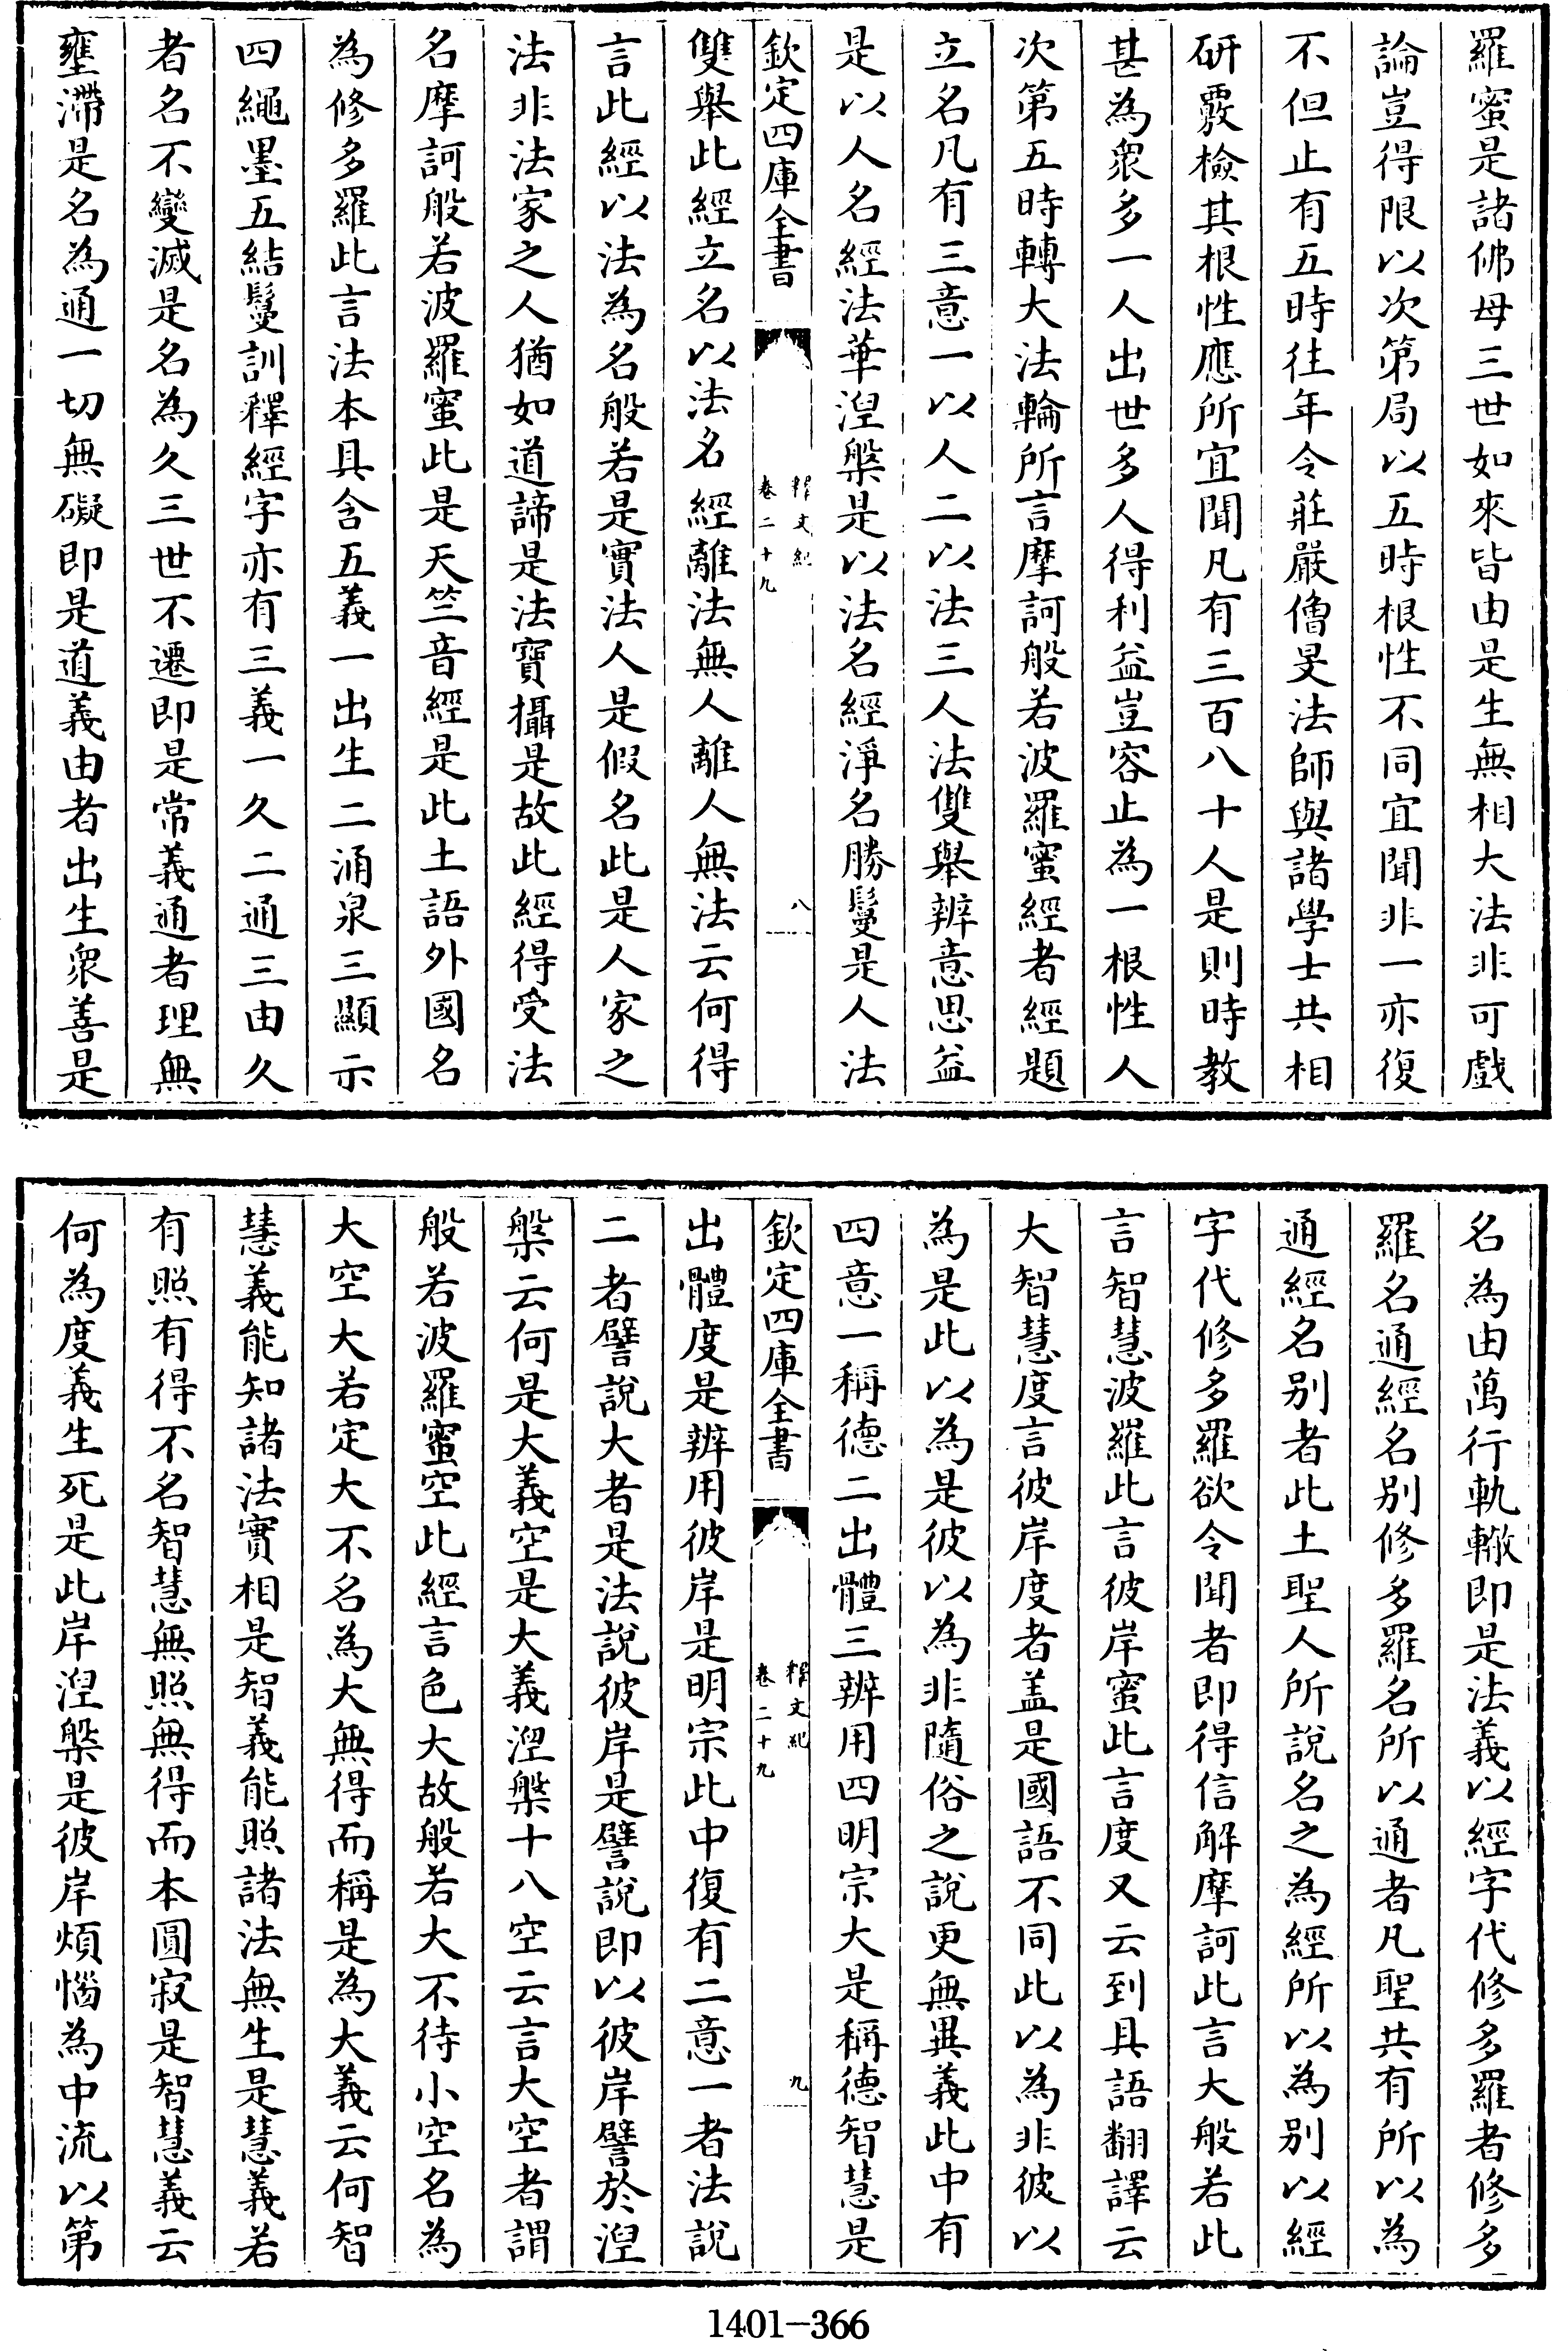 羅蜜是諸佛母三世如來皆由是生無相大法非可戲
論豈得限以次第局以五時根性不同宜聞非一亦復
不但止有五時往年令莊嚴僧旻法師與諸學士共相
研覈檢其根性應所宜聞凡有三百八十人是則時教
甚為衆多一人出世多人得利益豈容止為一根性人
次第五時轉大法輪所言摩訶般若波羅蜜經者經題
立名凡有三意一以人二以法三人法雙舉辨意思益
是以人名經法華涅槃是以法名經淨名勝鬘是人法
欽定四庫全書
釋文紀
卷二十九
八
雙舉此經立名以法名經離法無人離人無法云何得
言此經以法為名般若是實法人是假名此是人家之
法非法家之人猶如道諦是法寶攝是故此經得受法
名摩訶般若波羅蜜此是天竺音經是此土語外國名
為修多羅此言法本具含五義一出生二涌泉三顯示
四繩墨五結鬘訓釋經字亦有三義一久二通三由久
者名不變滅是名為久三世不遷即是常義通者理無
壅滯是名為通一切無礙即是道義由者出生衆善是
名為由萬行軌轍即是法義以經字代修多羅者修多
羅名通經名别修多羅名所以通者凡聖共有所以為
通經名别者此土聖人所說名之為經所以為别以經
字代修多羅欲令聞者即得信解摩訶此言大般若此
言智慧波羅此言彼岸蜜此言度又云到具語翻譯云
大智慧度言彼岸度者盖是國語不同此以為非彼以
為是此以為是彼以為非隨俗之說更無異義此中有
四意一稱德二出體三辨用四明宗大是稱德智慧是
欽定四庫全書
釋文紀
卷二十九
九
出體度是辨用彼岸是明宗此中復有二意一者法說
二者譬說大者是法說彼岸是譬說即以彼岸譬於涅
槃云何是大義空是大義涅槃十八空云言大空者謂
般若波羅蜜空此經言色大故般若大不待小空名為
大空大若定大不名為大無得而稱是為大義云何智
慧義能知諸法實相是智義能照諸法無生是慧義若
有照有得不名智慧無照無得而本圓寂是智慧義云
何為度義生死是此岸涅槃是彼岸煩惱為中流以第
1401-366